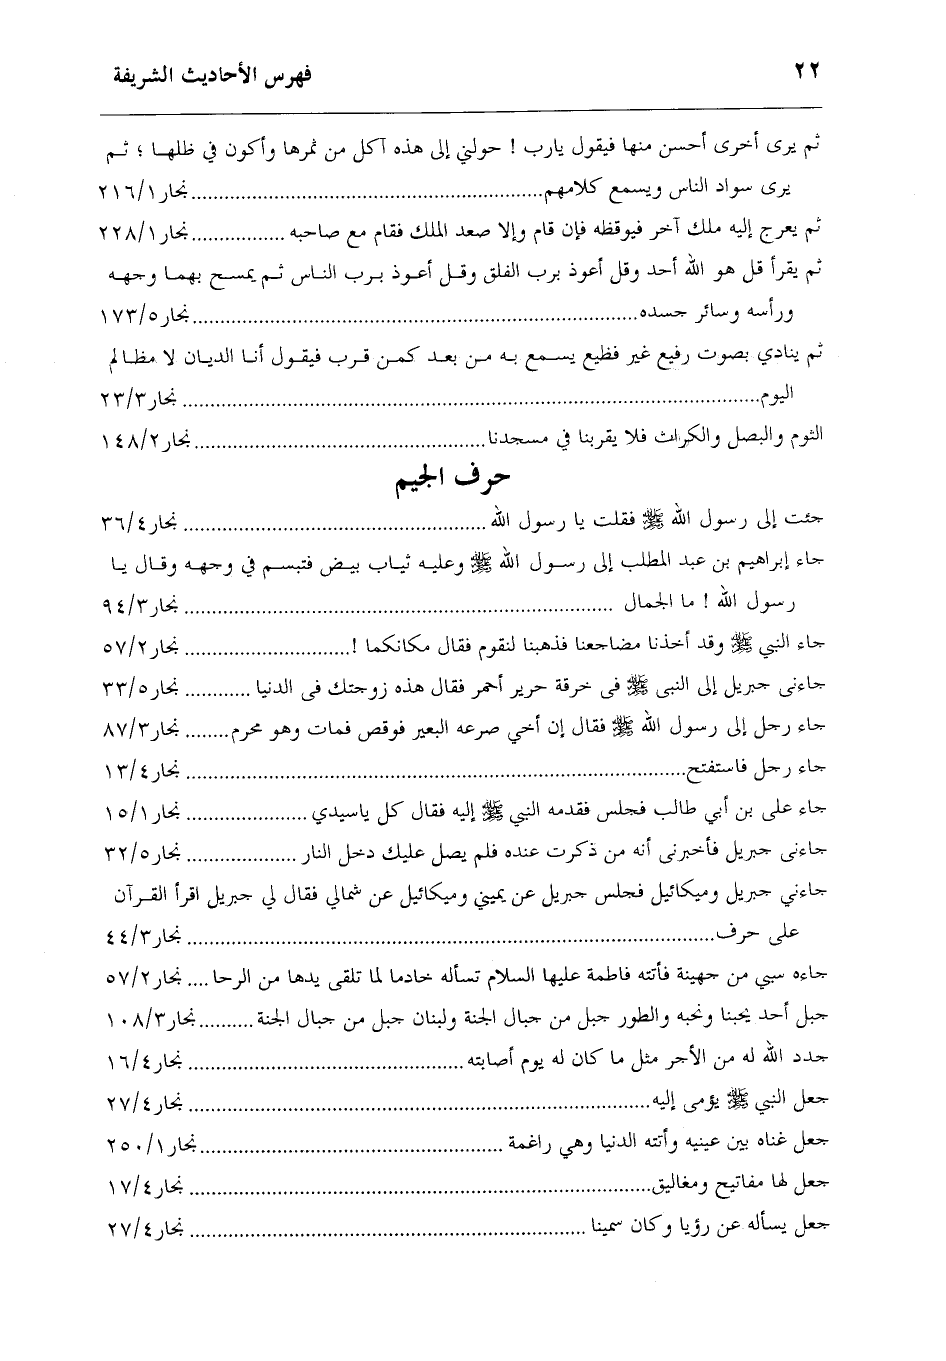 ٢٢ فهرس الأحاديث الشريفة
ثم يرى أخرى أحسن منها فيقول يارب ! حولني إلى هذه آكل من ثمرها وأكون في ظلها ؛ ثم
يرى سواد الناس ويسمع كلامهم......................................................نحار٢١٦/١
ثم يعرج إليه ملك آخر فيوقظه فإن قام وإلا صعد الملك فقام مع صاحبه ................نحار٢٢٨/١
ثم يقرأ قل هو الله أحد وقل أعوذ برب الفلق وقل أعوذ برب الناس ثم يمسح بهما وجهه
ورأسه وسائر جسده..........................................................................نحار١٧٣/٥
ثم ينادي بصوت رفيع غير فظيع يسمع به من بعد كمن قرب فيقول أنا الديان لا مظالم
اليوم................................................................................................نحار٢٣/٣
الثوم والبصل والكراث فلا يقربنا في مسجدنا................................................نحار١٤٨/٢
حرف الجيم
جئت إلى رسول الله ﷺ فقلت يا رسول الله..................................................نحار٣٦/٤
جاء إبراهيم بن عبد المطلب إلى رسول الله ﷺ وعليه ثياب بيض فتبسم في وجهه وقال يا
رسول الله ! ما الجمال ......................................................................نحار٩٤/٣
جاء النبي ﷺ وقد أخذنا مضاجعنا فذهبنا لنقوم فقال مكانكما !............................نحار٥٧/٢
جاءنى جبريل إلى النبى ﷺ فى خرقة حرير أحمر فقال هذه زوجتك فى الدنيا ............نحار٣٣/٥
جاء رجل إلى رسول الله ﷺ فقال إن أخي صرعه البعير فوقص فمات وهو محرم........نحار٨٧/٣
جاء رجل فاستفتح..................................................................................نحار١٣/٤
جاء على بن أبي طالب فجلس فقدمه النبي ﷺ إليه فقال كل ياسيدي ....................نحار١٥/١
جاءنى جبريل فأخبرنى أنه من ذكرت عنده فلم يصل عليك دخل النار ...................نحار٣٢/٥
جاءني جبريل وميكائيل فجلس جبريل عن يميني وميكائيل عن شمالي فقال لي جبريل اقرأ القرآن
على حرف........................................................................................نحار٤٤/٣
جاءه سبي من جهينة فأتته فاطمة عليها السلام تسأله خادما لما تلقى يدها من الرحا....نحار٥٧/٢
جبل أحد يحبنا ونحبه والطور جبل من جبال الجنة ولبنان جبل من جبال الجنة..........نحار١٠٨/٣
جدد الله له من الأجر مثل ما كان له يوم أصابته..............................................نحار١٦/٤
جعل النبي ﷺ يؤمى إليه..........................................................................نحار٢٧/٤
جعل غناه بين عينيه وأتته الدنيا وهي راغمة ..................................................نحار٢٥٠/١
جعل لها مفاتيح ومغاليق..........................................................................نحار١٧/٤
جعل يسأله عن رؤيا وكان سمينا ................................................................نحار٢٧/٤